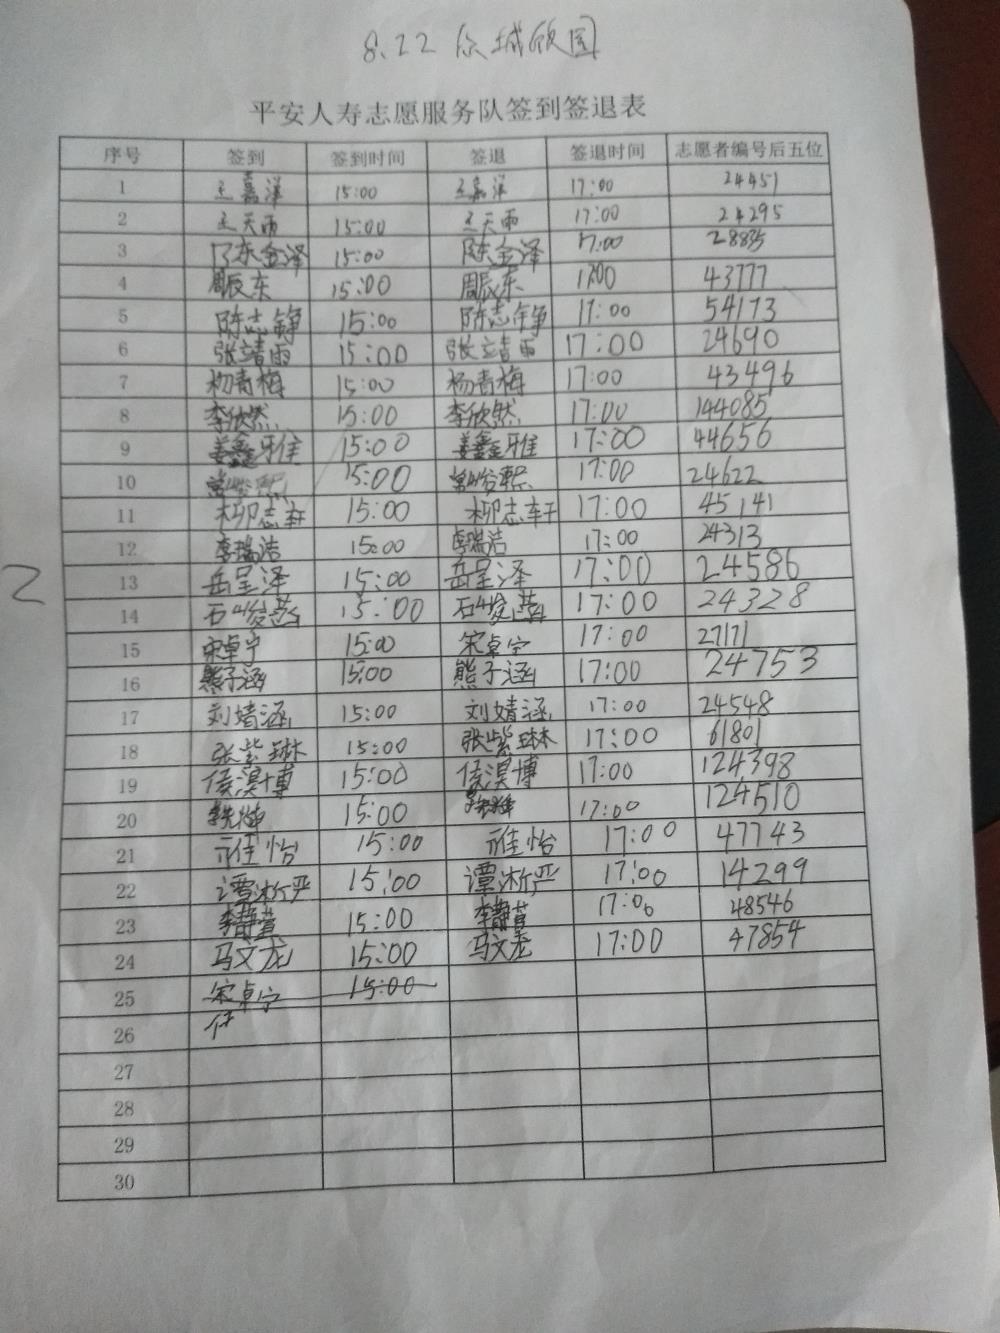 8.22 众城欣园
平安人寿志愿服务队签到签退表
序号 签到 签到时间 签退 签退时间 志愿者编号后五位
1 王嘉洋 15:00 王嘉洋 17:00 24451
2 王天雨 15:00 王天雨 17:00 24295
3 陈金泽 15:00 陈金泽 17:00 28835
4 周辰东 15:00 周辰东 17:00 43777
5 陈志铮 15:00 陈志铮 17:00 54173
6 张靖雨 15:00 张靖雨 17:00 24690
7 杨青梅 15:00 杨青梅 17:00 43496
8 李欣然 15:00 李欣然 17:00 144085
9 姜鑫雅 15:00 姜鑫雅 17:00 44656
10 常峻熙 15:00 常峻熙 17:00 24622
11 柳志轩 15:00 柳志轩 17:00 45141
12 李瑞洁 15:00 李瑞洁 17:00 24313
2
13 岳呈泽 15:00 岳呈泽 17:00 24586
14 石峻菡 15:00 石峻菡 17:00 24328
15 宋卓宁 15:00 宋卓宁 17:00 27171
16 熊子涵 15:00 熊子涵 17:00 24753
17 刘婧涵 15:00 刘婧涵 17:00 24548
18 张紫琳 15:00 张紫琳 17:00 61801
19 侯淏博 15:00 侯淏博 17:00 124398
20 15:00 17:00 124510
21 佳怡 15:00 佳怡 17:00 47743
22 谭淅严 15:00 谭淅严 17:00 14299
23 李静萱 15:00 李静萱 17:00 48546
24 马文龙 15:00 马文龙 17:00 47854
25 宋卓宁 15:00
26
27
28
29
30